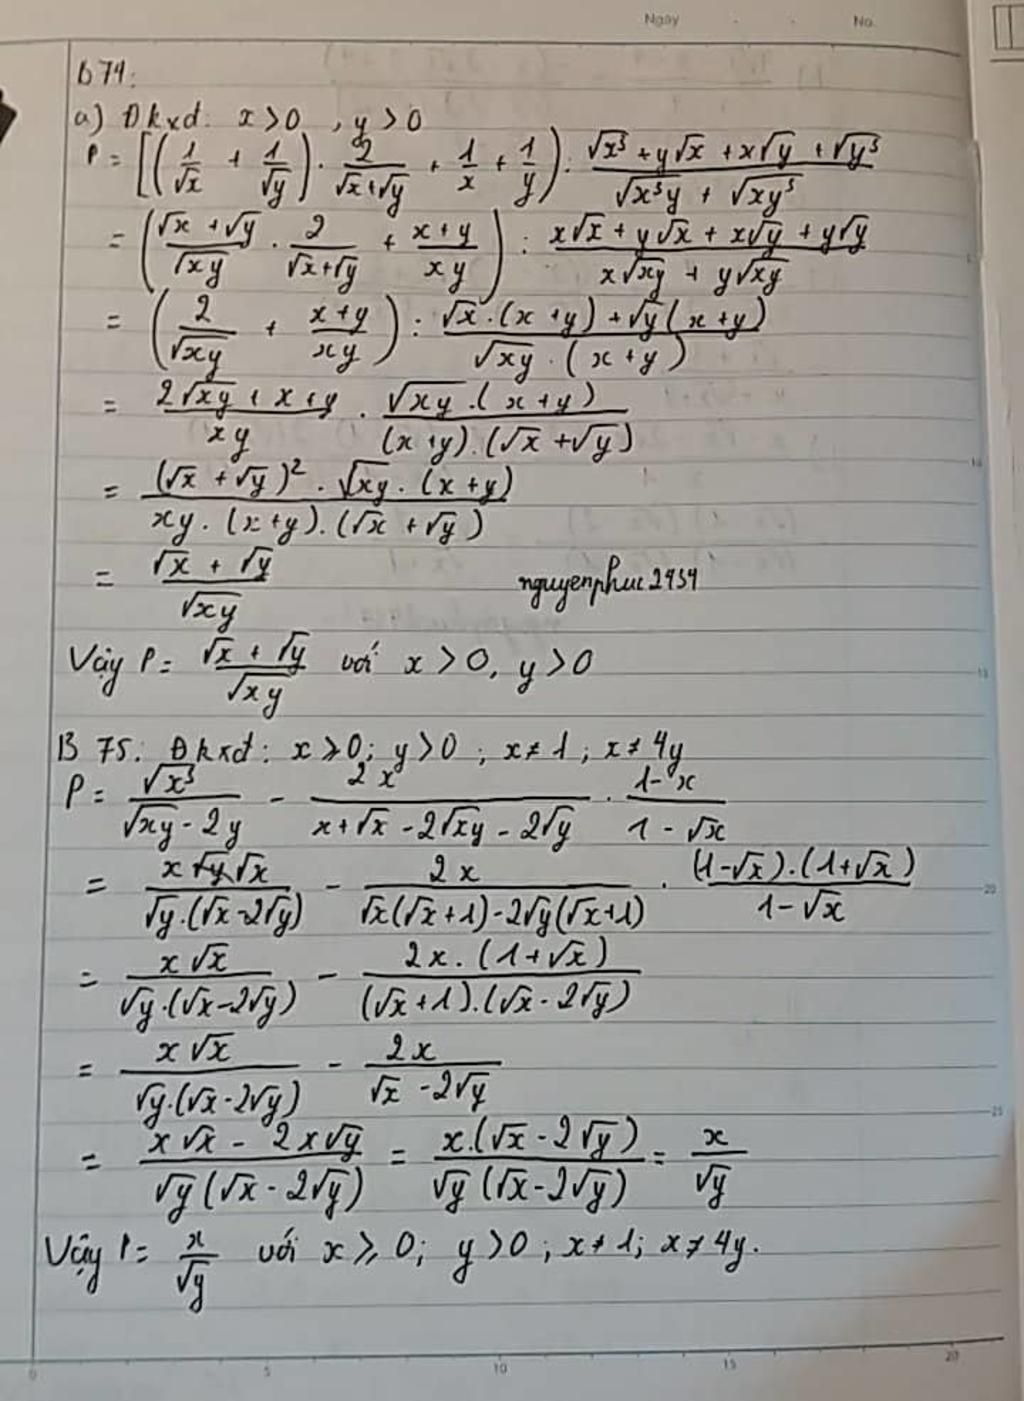 Ngày No.
b74:
a) Đkxd: x>0 , y>0
P = [(1/√x + 1/√y) . 2/(√x+√y) + 1/x + 1/y) : (√x³ + y√x + x√y + √y³)/(√x³y + √xy³)
= ((√x + √y)/√xy . 2/(√x+√y) + (x+y)/xy) : (x√x + y√x + x√y + y√y)/(x√xy + y√xy)
= (2/√xy + (x+y)/xy) : (√x.(x+y) + √y(x+y))/(√xy.(x+y))
= (2√xy + x + y)/xy . (√xy.(x+y))/((x+y).(√x+√y))
= ((√x + √y)² . √xy . (x+y))/(xy.(x+y).(√x+√y))
= (√x + √y)/√xy nguyenphuc2434
Vậy P = (√x + √y)/√xy với x>0, y>0
B 75: Đkxd: x⩾0; y>0 ; x≠1 ; x≠4y
P = √x³/(√xy - 2y) - 2x/(x+√x - 2√xy - 2√y) . (1-x)/(1-√x)
= x√x/(√y.(√x-2√y)) - 2x/(√x(√x+1)-2√y(√x+1)) . ((1-√x).(1+√x))/(1-√x)
= x√x/(√y.(√x-2√y)) - (2x.(1+√x))/((√x+1).(√x-2√y))
= x√x/(√y.(√x-2√y)) - 2x/(√x-2√y)
= (x√x - 2x√y)/(√y(√x-2√y)) = (x.(√x-2√y))/(√y(√x-2√y)) = x/√y
Vậy P = x/√y với x⩾0; y>0 ; x≠1; x≠4y.
0 5 10 15 20